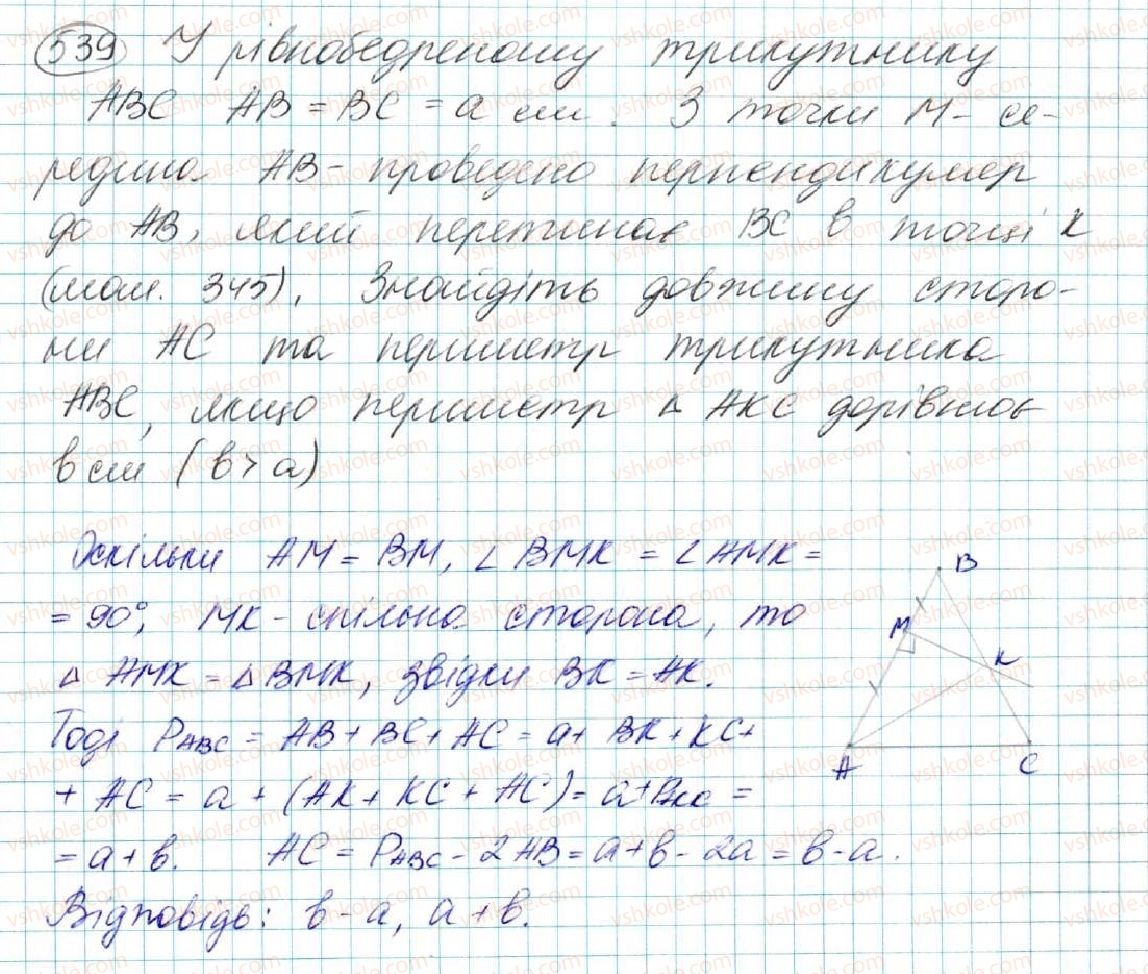 539 У рівнобедреному трикутнику
ABC AB = BC = a см. З точки M - се-
редина AB - проведено перпендикуляр
до AB, який перетинає BC в точці K
(мал. 345). Знайдіть довжину сторо-
ни AC та периметр трикутника
ABC, якщо периметр Δ AKC дорівнює
в см (в > a)
Оскільки AM = BM, ∠ BMK = ∠ AMK =
= 90°, MK - спільна сторона, то
Δ AMK = Δ BMK, звідки BK = AK.
Тоді P_ABC = AB + BC + AC = a + BK + KC +
+ AC = a + (AK + KC + AC) = a + P_AKC =
= a + в. AC = P_ABC - 2AB = a + в - 2a = в - a.
Відповідь: в - a, a + в.
B
M
K
A
C